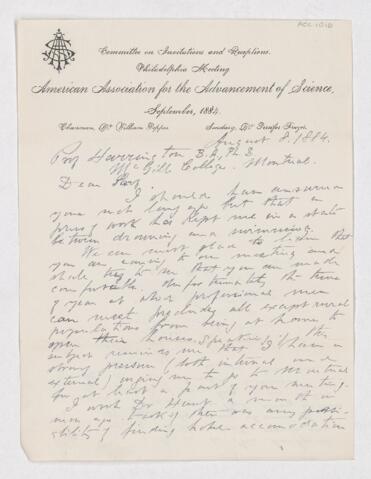 ACC 1010
Committee on Invitations and Receptions.
Philadelphia Meeting
American Association for the Advancement of Science,
September, 1884.
Chairman, Dr. William Pepper. Secretary, Dr. Persifor Frazer.
August 8. 1884.
Prof Harrington B.A, Ph.D.
McGill College. Montreal.
Dear Prof
I should have answered
your note long ago but that a
press of work has kept me in a state
between drowning and swimming.
We are most glad to learn that
you are coming to our meeting and
shall try to see that you are made
comfortable. Unfortunately the time
of year at which professional men
can meet precludes all except rural
populations from being at home to
open their houses. Speaking of this
subject reminds me that I have a
strong pressure (both internal and
external) urging me to go to Montreal
for at least a part of your meeting.
I wrote Dr Hunt a month or
more ago to ask if there was any possi-
bility of finding hotel accomodation